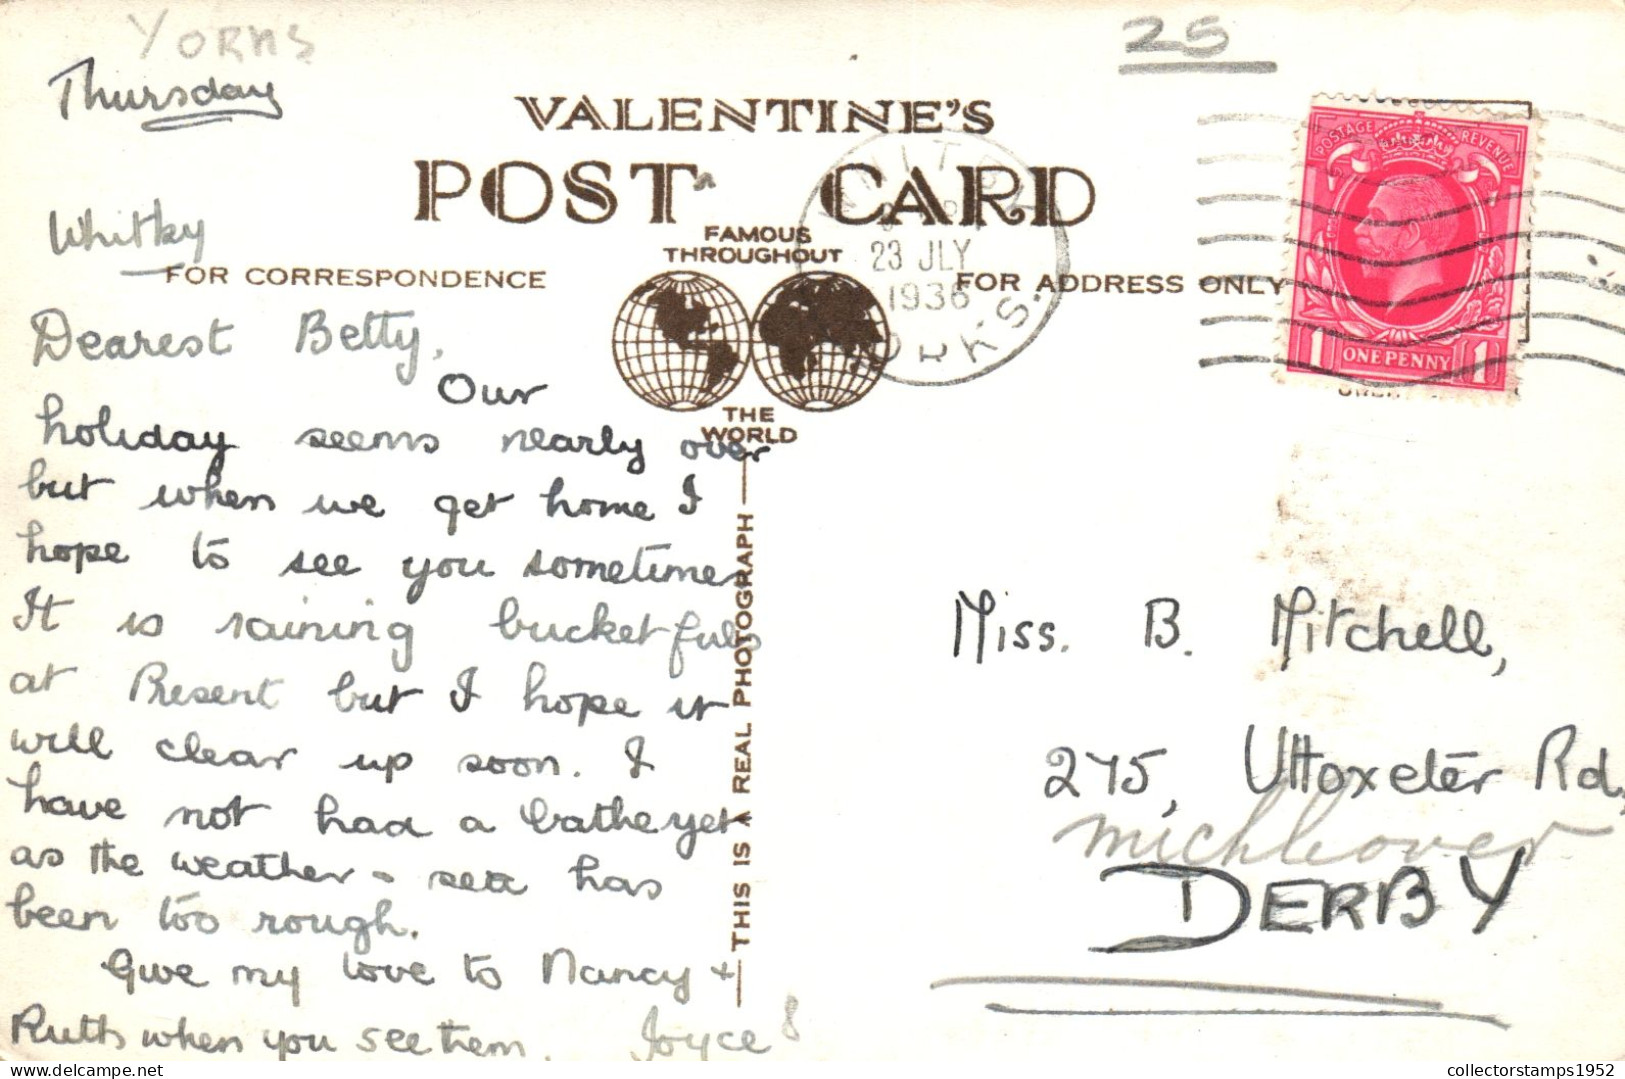 YORKS
25
Thursday
VALENTINE'S
POST CARD
FAMOUS
THROUGHOUT
THE
WORLD
WHITBY
23 JLY
1936
YORKS.
POSTAGE REVENUE
1 ONE PENNY 1
Whitby
FOR CORRESPONDENCE
FOR ADDRESS ONLY
Dearest Betty,
Our
holiday seems nearly over
but when we get home I
hope to see you sometime
It is raining bucketfuls
at Present but I hope it
will clear up soon. I
have not had a bathe yet
as the weather - sea has
been too rough.
Give my love to Nancy +
Ruth when you see them. Joyce
THIS IS A REAL PHOTOGRAPH
Miss. B. Mitchell,
275, Uttoxeter Rd,
Mickleover
DERBY
collectorstamps1952